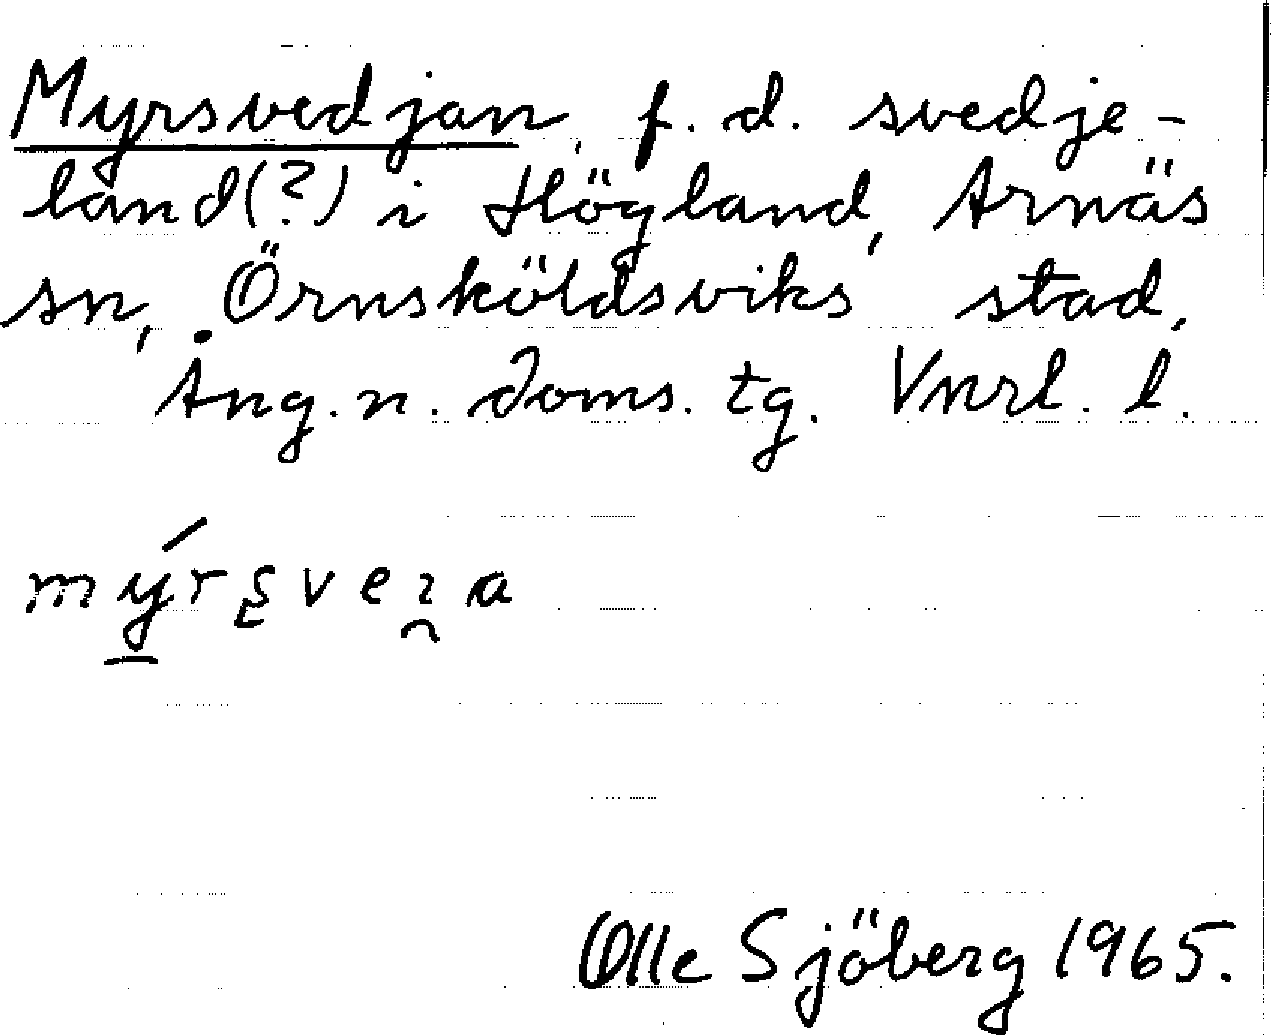 Myrsvedjan, f. d. svedje-
land(?) i Högland, Arnäs
sn, Örnsköldsviks stad,
Ång. n. doms. tg. Vnrl. l.
mýrsveɿa
Olle Sjöberg 1965.